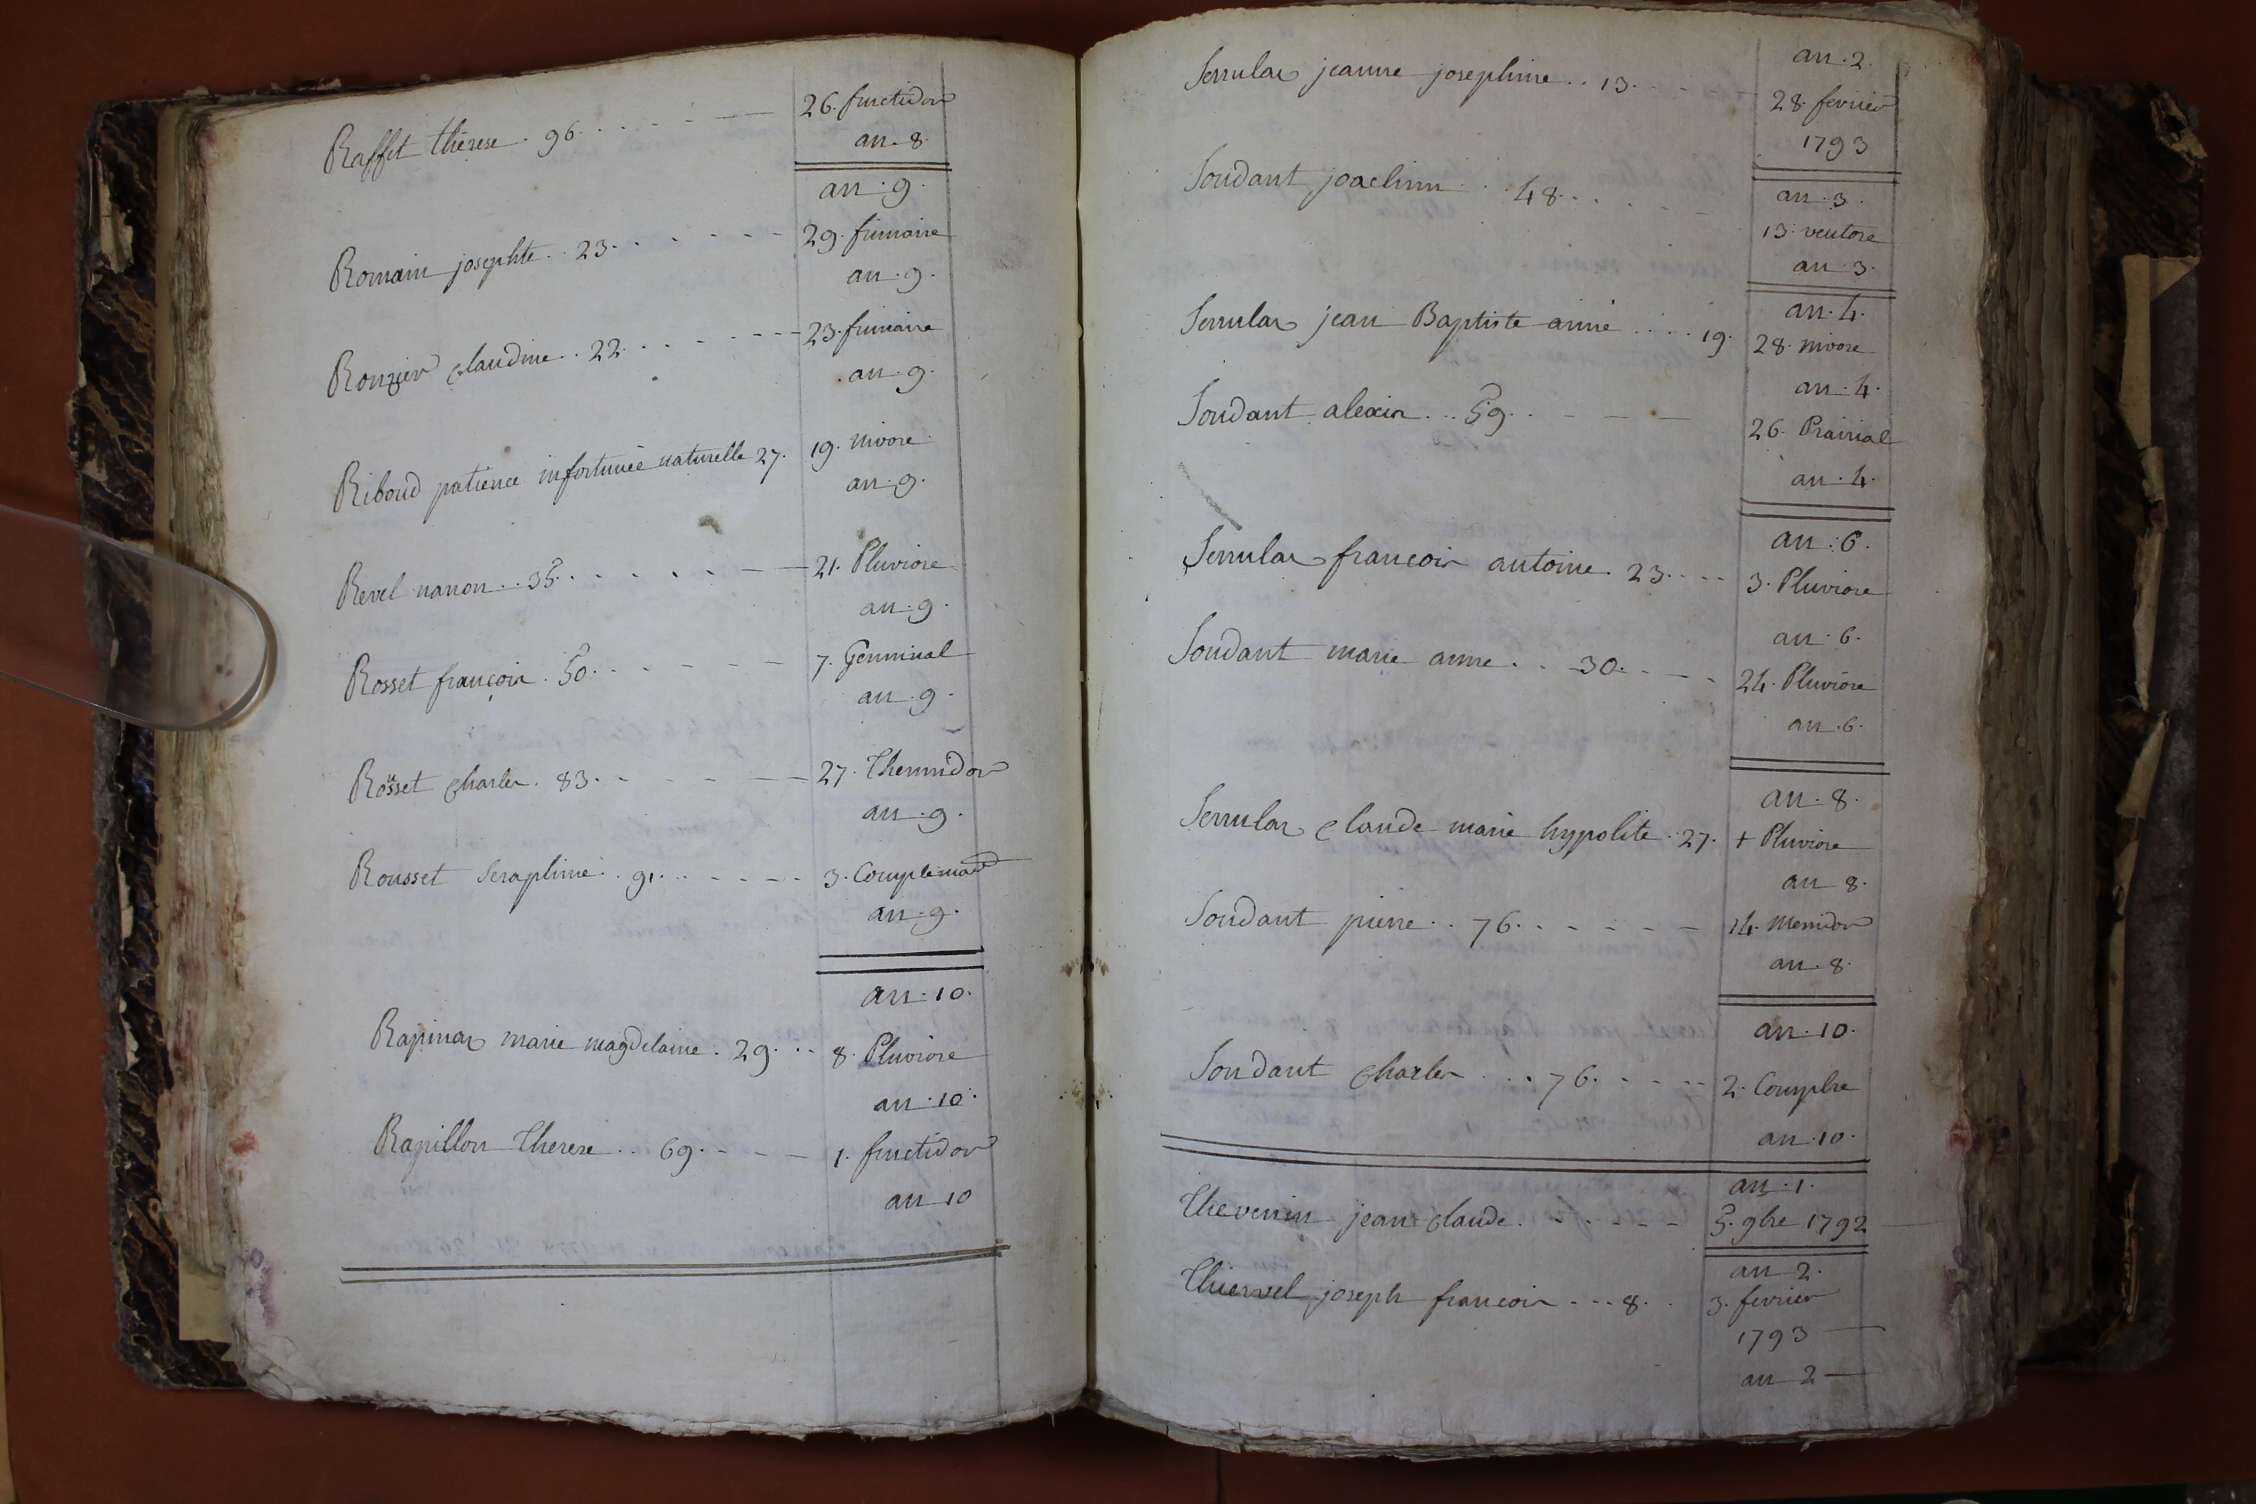 Raffet thérese . 96 . . . . . . 26. fructidor
an . 8.
an . 9.
Romain josephte . . 23 . . . . . . 29. frimaire
an . 9.
Ronzier claudine . . 22 . . . . . . 23. frimaire
an . 9.
Riboud patience infortunée naturelle 27. 19. nivose
an . 9.
Revel nanon . . 35 . . . . . . 21. Pluviose
an . 9.
Rosset françois . 50 . . . . . . 7. Germinal
an . 9.
Rosset charles . 83 . . . . . . 27. Thermidor
an . 9.
Rousset Seraphine . . 91 . . . . . . 3. Complemard
an . 9.
an . 10.
marie magdelaine . 29 . . . 8. Pluviose
an . 10.
Rapillon Therese . . 69 . . . . 1. fructidor
an 10
an . 2.
jeanne josephine . . 13 . . . . 28. fevrier
1793
Soudant joachim . . 48 . . . . . an . 3.
13. ventose
an . 3.
an . 4.
jean Baptiste aimé . . . . 19. 28. nivose
an . 4.
Soudant alexis . . . 59 . . . . 26. Prairial
an . 4.
an . 6.
françois antoine . 23 . . . . 3. Pluviose
an . 6.
Soudant marie anne . . 30 . . . . 24. Pluviose
an . 6.
an . 8.
claude marie hypolite . 27. + Pluviose
an 8.
Soudant pierre . . 76 . . . . . . 14. Messidor
an . 8.
an . 10.
Soudant charles . . . 76 . . . . . 2. Complre
an . 10.
an . 1.
Thevenin jean claude . . . . . . 5. 9bre 1792
an 2.
joseph françois . . . 8 . . 3. fevrier
1793
an 2